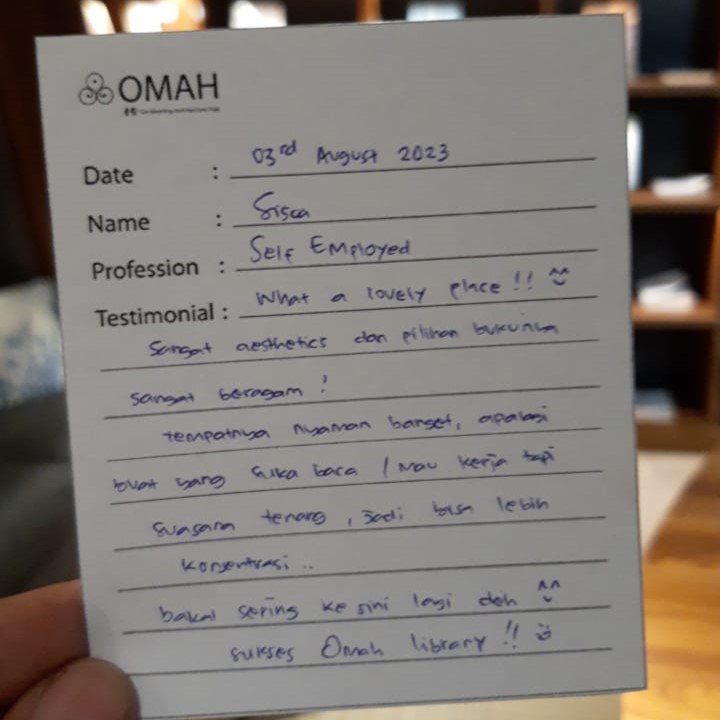 OMAH
Date : 03rd August 2023
Name : Sisca
Profession : Self Employed
Testimonial : What a lovely place !! ^^
Sangat aesthetics dan pilihan bukunya
sangat beragam !
tempatnya nyaman banget, apalagi
buat yang suka baca / mau kerja tapi
suasana tenang, jadi bisa lebih
konsentrasi ..
bakal sering ke sini lagi deh ^^
sukses Omah library !! :)